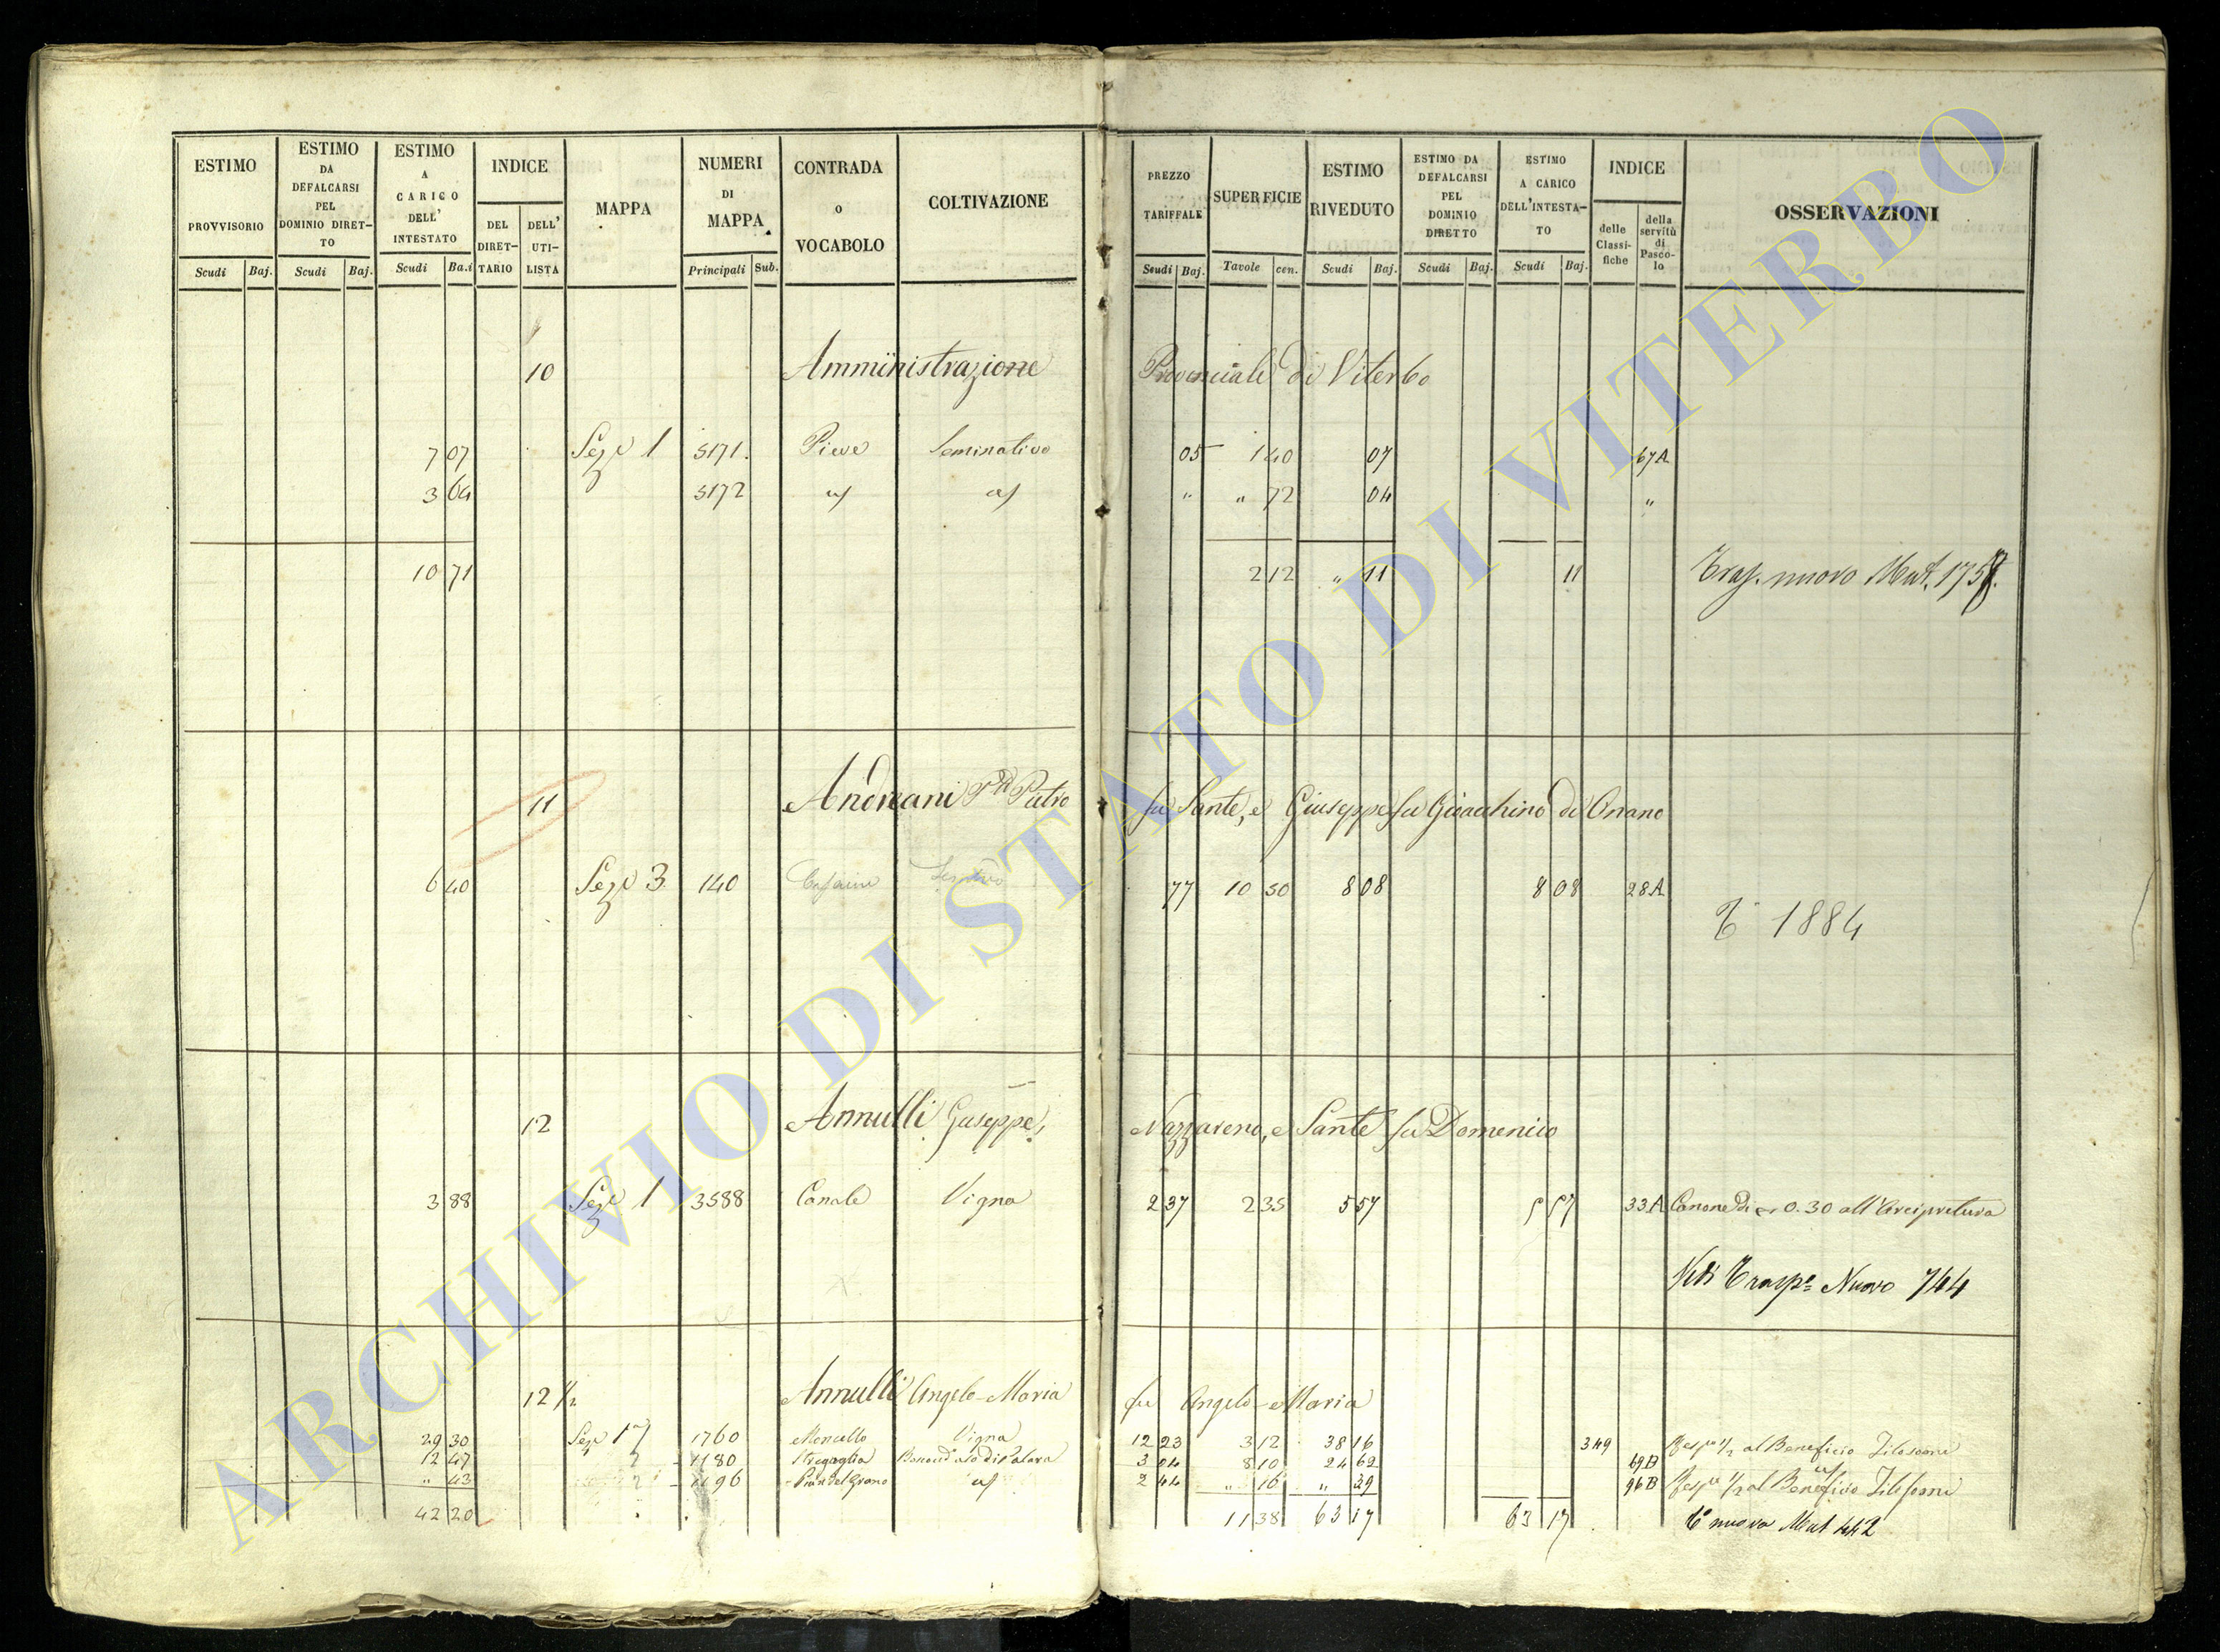 ESTIMO PROVVISORIO Scudi Baj.
ESTIMO DA DEFALCARSI PEL DOMINIO DIRET-TO Scudi Baj.
ESTIMO A CARICO DELL' INTESTATO Scudi Ba.i
INDICE DEL DIRET-TARIO DELL' UTI-LISTA
MAPPA
NUMERI DI MAPPA Principali Sub.
CONTRADA o VOCABOLO
COLTIVAZIONE
PREZZO TARIFFALE Scudi Baj.
SUPERFICIE Tavole cen.
ESTIMO RIVEDUTO Scudi Baj.
ESTIMO DA DEFALCARSI PEL DOMINIO DIRETTO Scudi Baj.
ESTIMO A CARICO DELL'INTESTA-TO Scudi Baj.
INDICE delle Classi-fiche della servitù di Pasco-lo
OSSERVAZIONI
10 Amministrazione Provinciale di Viterbo
7 07 Sez. 1 5171. Pieve Seminativo 05 1 40 07 67A
3 64 5172 " " 72 04 "
10 71 2 12 " 11 11 Trasp. nuovo Mat. 1757.
11 Andreani Pietro fu Sante, e Giuseppe fu Gioacchino di Onano
6 40 Sez. 3 140 77 10 50 8 08 8 08 28A
T. 1884
12 Annulli Giuseppe, Nazzareno, e Sante fu Domenico
3 88 Sez. 1 3588 Canale Vigna 2 37 2 35 5 57 5 57 33A Canone di 0.30 all'Arcipretura
Vedi Trasp.e Nuovo 744
12 1/2 Annulli Angelo-Maria fu Angelo-Maria
29 30 Sez. 1 1760 Moncello Vigna 12 23 3 12 38 16 349 1/2 al Beneficio
12 47 1180 3 04 8 10 24 62 69B
" 43 1196 Pian del Grano 2 44 " 16 " 39 96B 1/2 al Beneficio
42 20 11 38 63 17 63 17 T. nuova Mat 442
ARCHIVIO DI STATO DI VITERBO